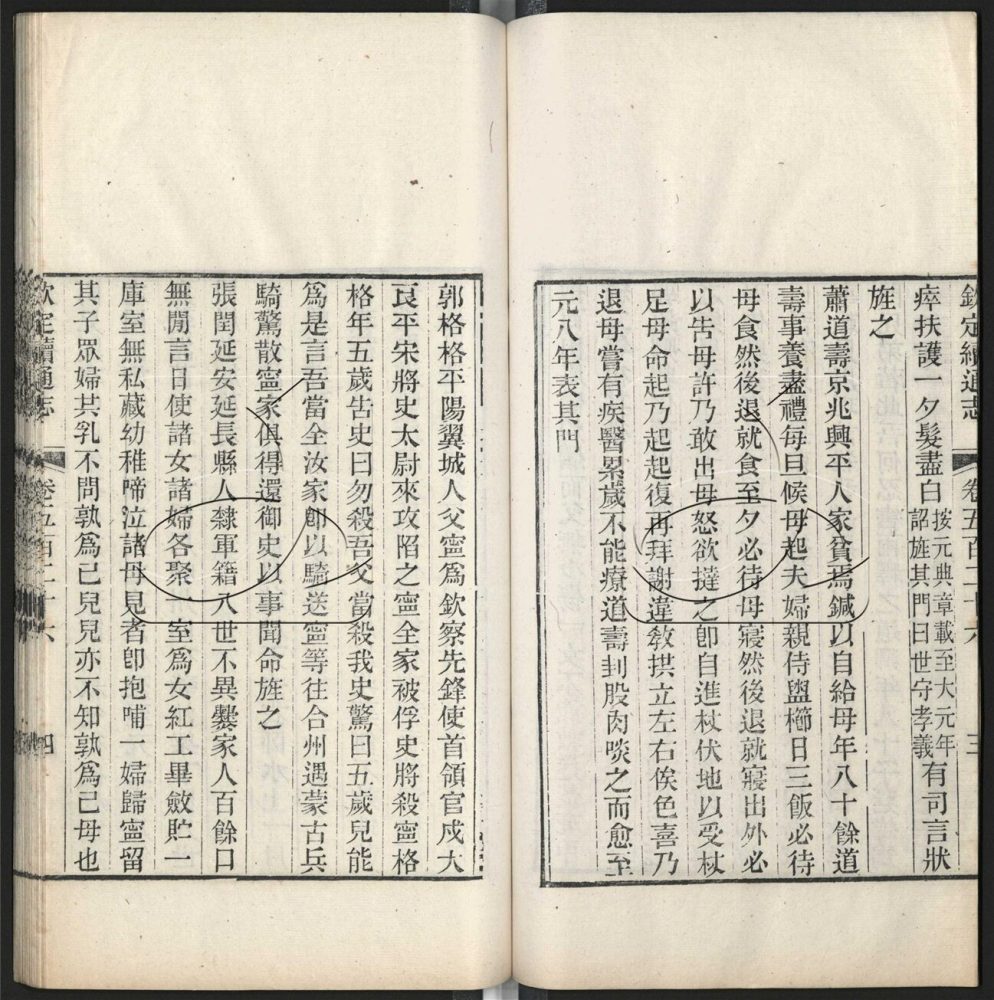 欽定續通志 卷五百二十六 三
瘁扶護一夕髮盡白按元典章載至大元年詔旌其門曰世守孝義有司言狀
旌之
蕭道壽京兆興平人家貧鬻鍼以自給母年八十餘道
壽事養盡禮每旦候母起夫婦親侍盥櫛日三飯必待
母食然後退就食至夕必待母寢然後退就寢出外必
以告母許乃敢出母怒欲撻之卽自進杖伏地以受杖
足母命起乃起起復再拜謝違敎拱立左右俟色喜乃
退母嘗有疾醫累歲不能療道壽刲股肉啖之而愈至
元八年表其門
郭格格平陽翼城人父寗爲欽察先鋒使首領官戍大
良平宋將史太尉來攻陷之寗全家被俘史將殺寗格
格年五歲告史曰勿殺吾父當殺我史驚曰五歲兒能
爲是言吾當全汝家卽以騎送寗等往合州遇蒙古兵
騎驚散寗家俱得還御史以事聞命旌之
張閏延安延長縣人隸軍籍八世不異爨家人百餘口
無閒言日使諸女諸婦各聚一室爲女紅工畢斂貯一
庫室無私藏幼稚啼泣諸母見者卽抱哺一婦歸寗留
其子眾婦共乳不問孰爲己兒兒亦不知孰爲己母也
欽定續通志 卷五百二十六 四